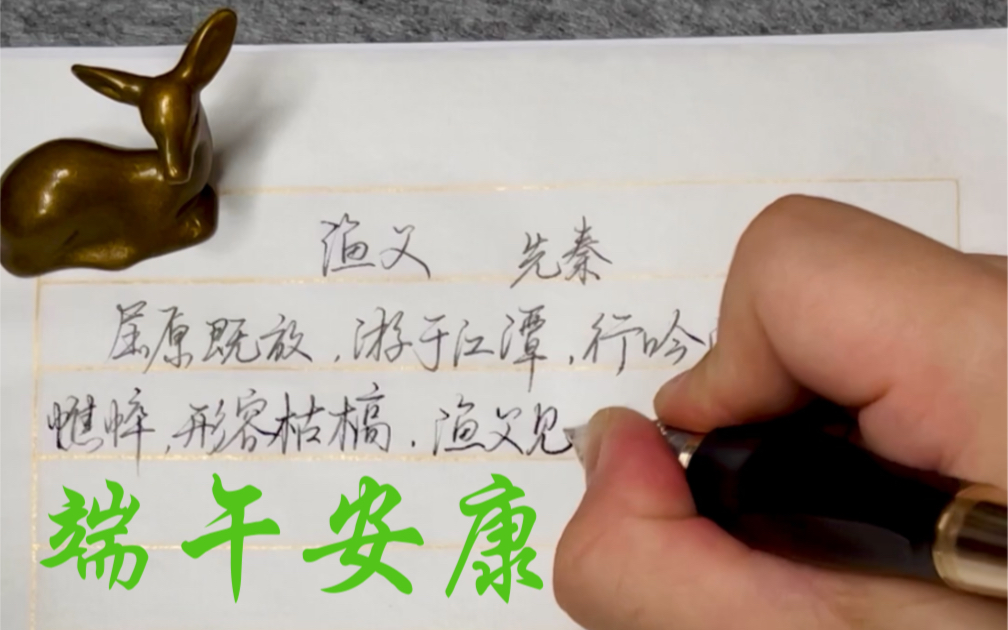 渔父 先秦
屈原既放，游于江潭，行吟
憔悴，形容枯槁．渔父见
端午安康